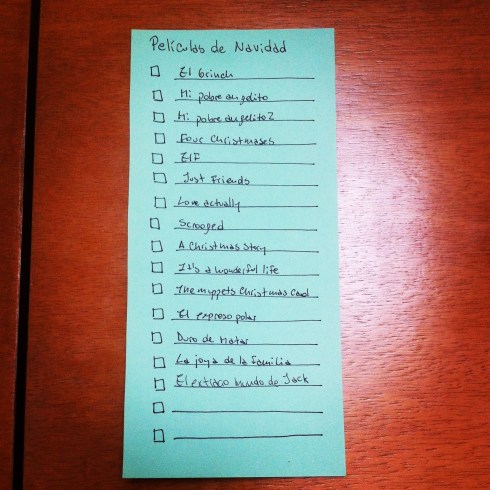 Películas de Navidad
El Grinch
Mi pobre angelito
Mi pobre angelito 2
Four Christmases
Elf
Just Friends
Love actually
Scrooged
A Christmas Story
It's a wonderful life
The muppets Christmas Carol
El expreso polar
Duro de Matar
La joya de la Familia
El extraño mundo de Jack